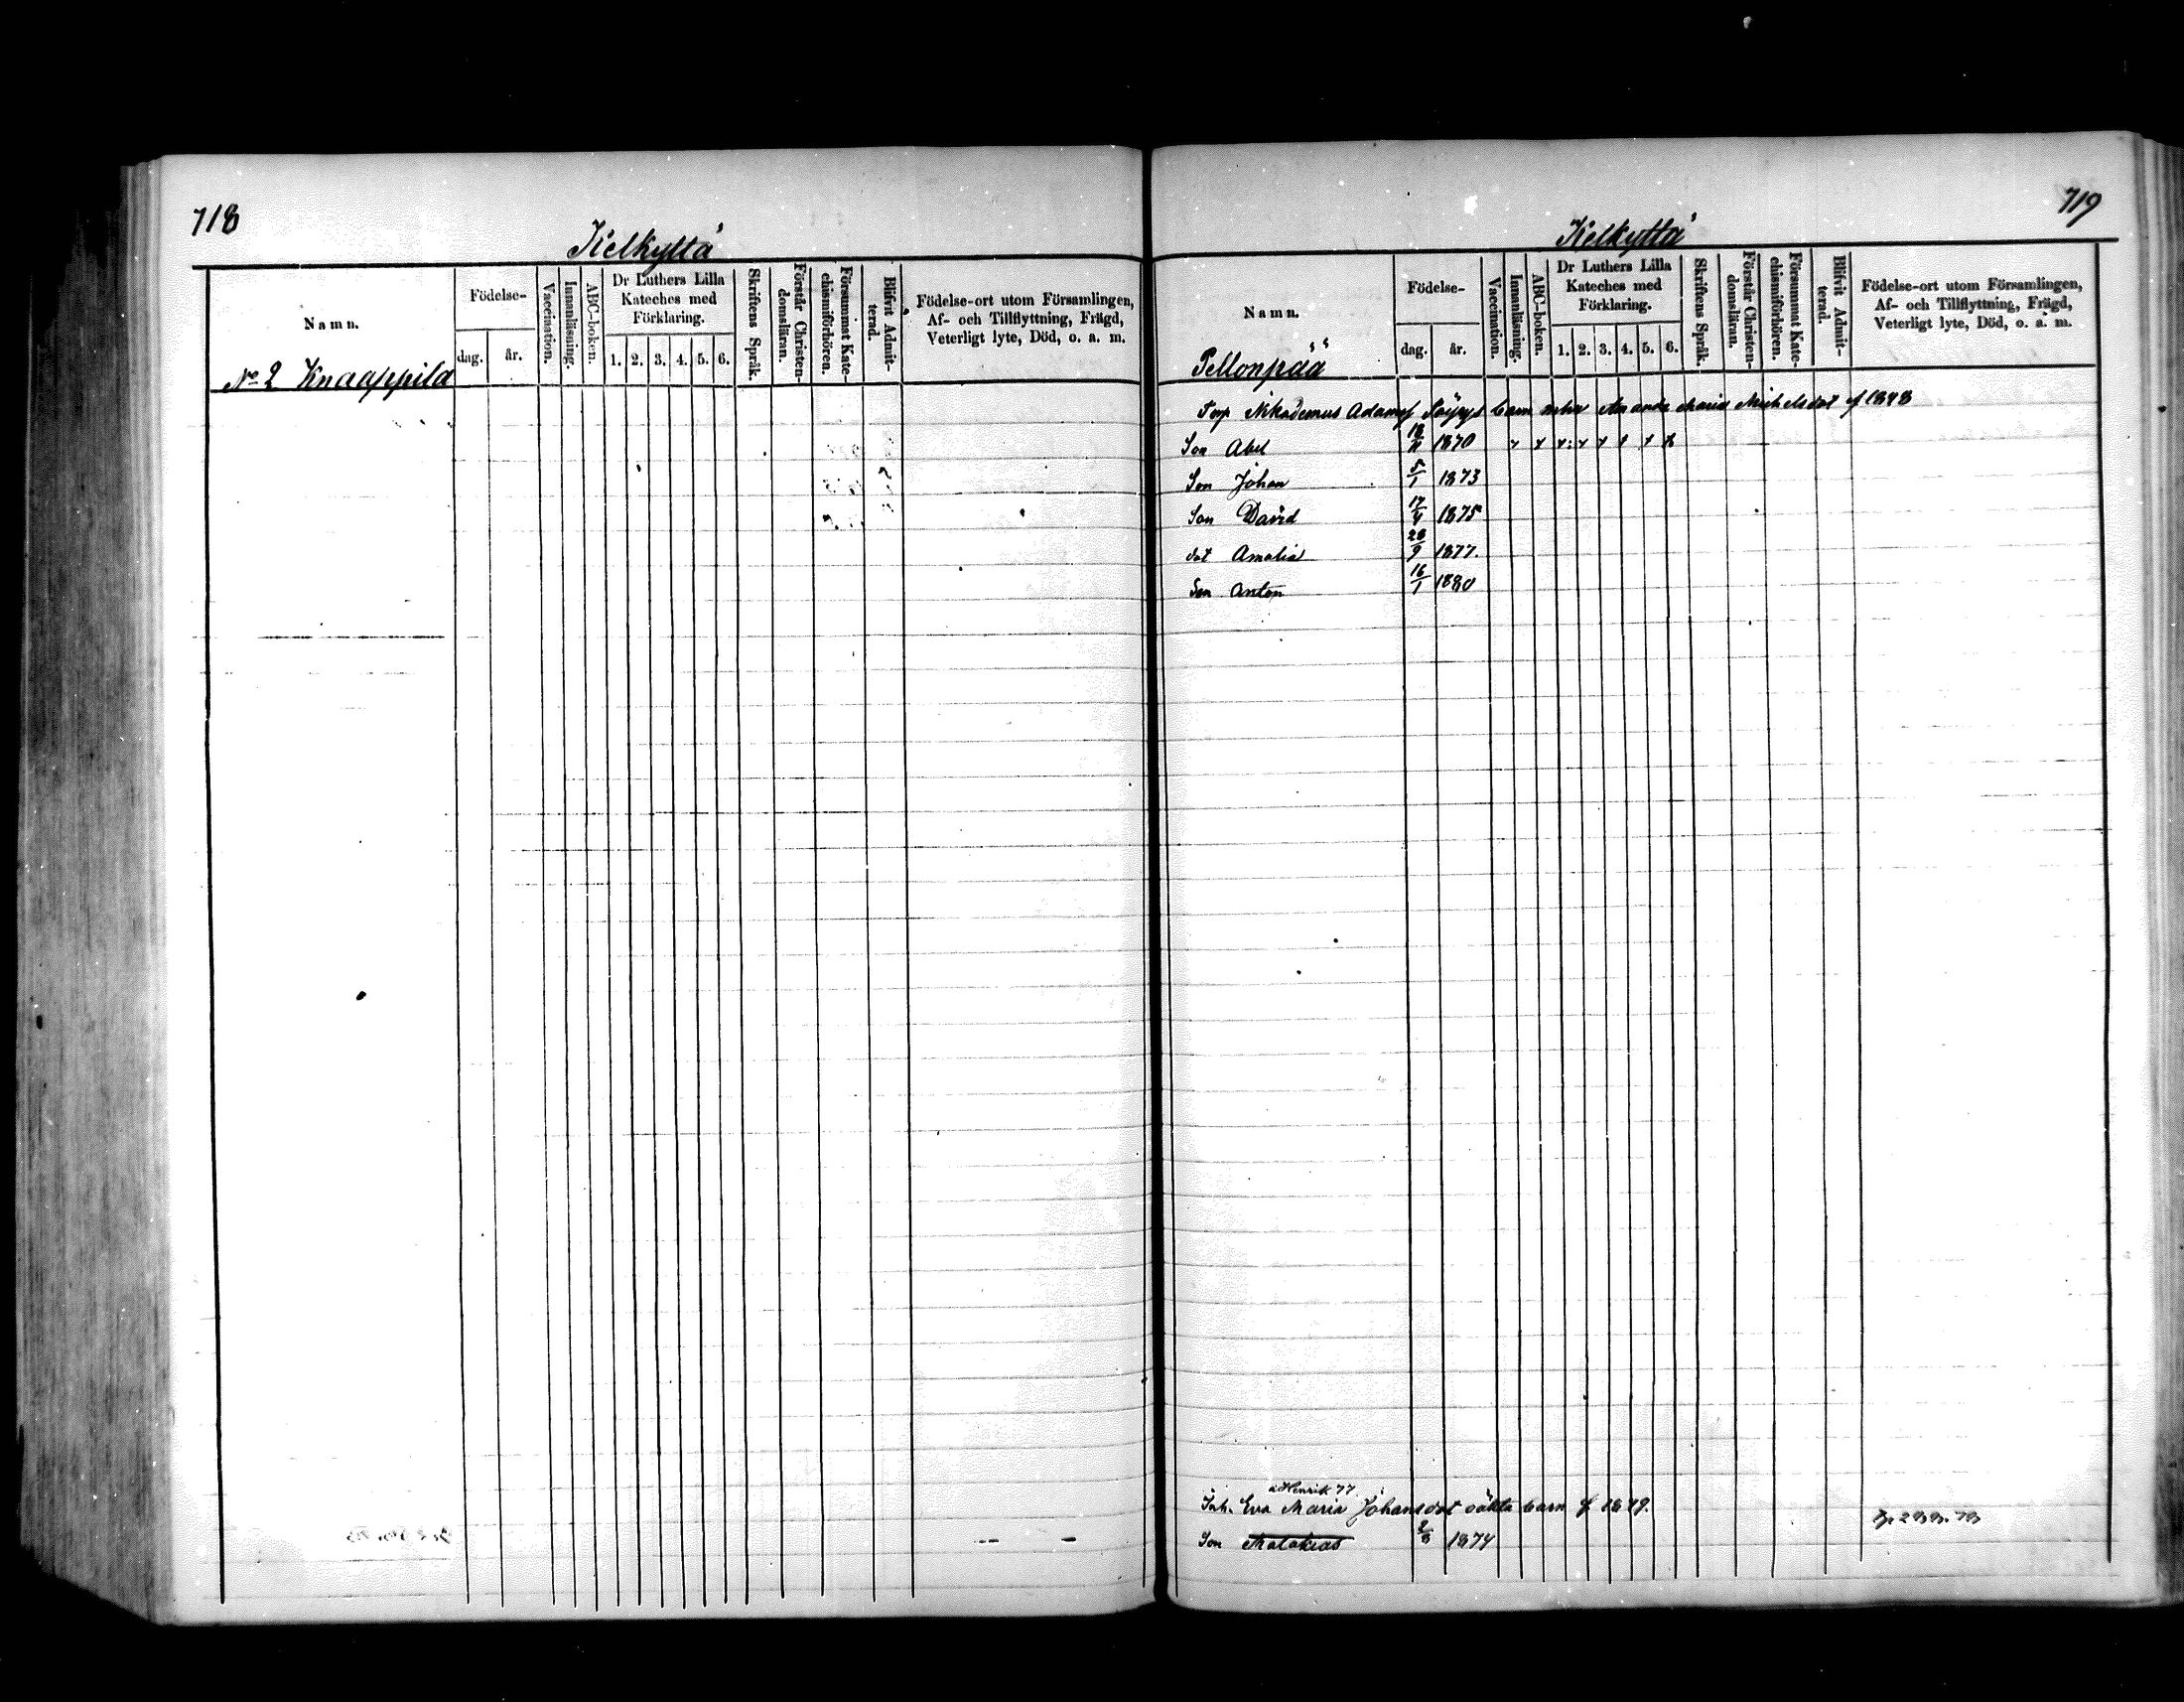 718
Kelkyttä
Namn.
Födelse-
dag.
år.
Vaccination.
Innanläsning.
ABC-boken.
Dr Luthers Lilla
Kateches med
Förklaring.
1. 2. 3. 4. 5. 6.
Skriftens Språk.
Förstår Christen-
domsläran.
Försummat Kate-
chismiförhören.
Blifvit Admit-
terad.
Födelse-ort utom Församlingen,
Af- och Tillflyttning, Frägd,
Veterligt lyte, Död, o. a. m.
No 2 Knaappila
719
Kelkyttä
Namn.
Födelse-
dag.
år.
Vaccination.
Innanläsning.
ABC-boken.
Dr Luthers Lilla
Kateches med
Förklaring.
1. 2. 3. 4. 5. 6.
Skriftens Språk.
Förstår Christen-
domsläran.
Försummat Kate-
chismiförhören.
Blifvit Admit-
terad.
Födelse-ort utom Församlingen,
Af- och Tillflyttning, Frägd,
Veterligt lyte, Död, o. a. m.
Pellonpää
Torp Nikademus Adamsf barn Amanda Maria Michelsdot f 1848
Son Abel 1870
Son Johan 5/1 1873
Son David 17/4 1875
dot Amalia 28/9 1877.
Son Anton 16/1 1880
Henrik 77
Inh. Eva Maria Johansdot oäkta barn f 1849.
Son Malakias 1874